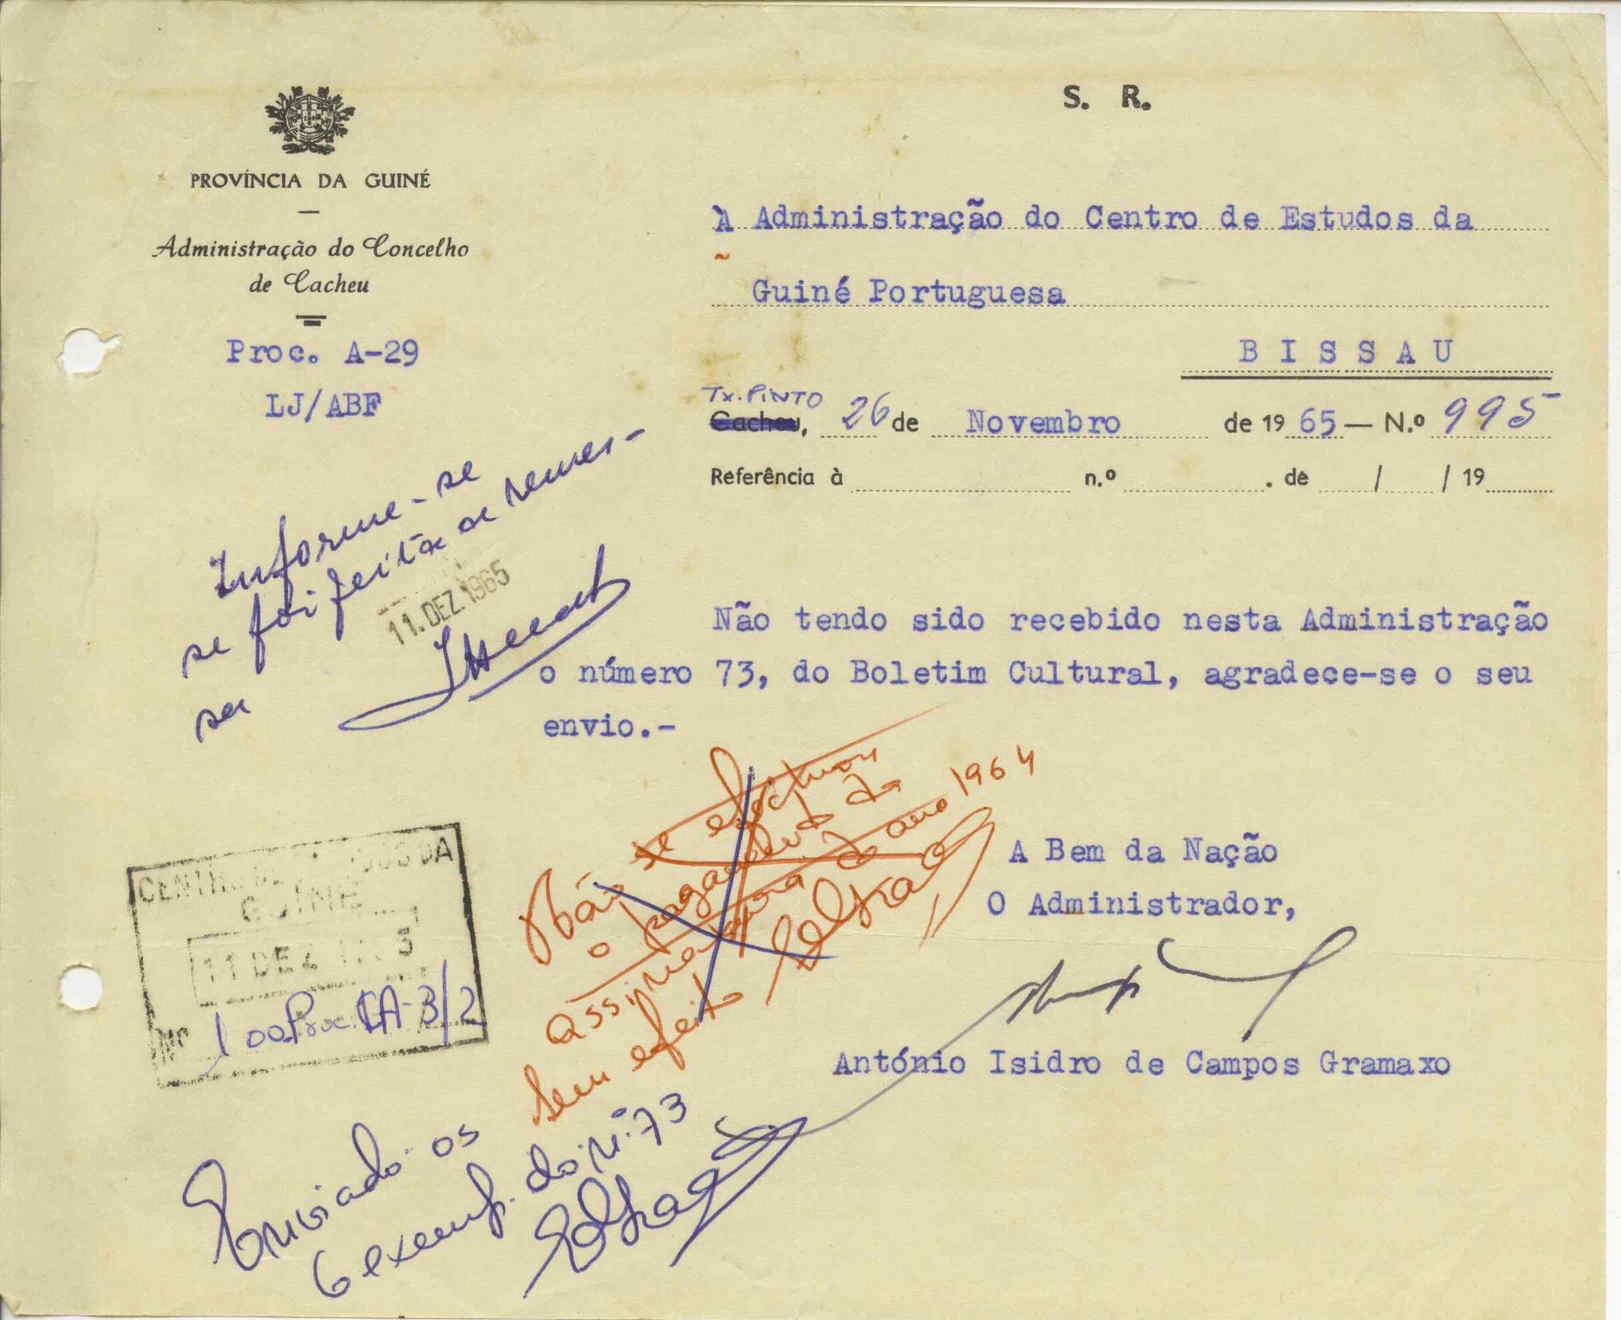 S. R.
PROVÍNCIA DA GUINÉ
Administração do Concelho
de Cacheu
Proc. A-29
LJ/ABF
À Administração do Centro de Estudos da
Guiné Portuguesa
B I S S A U
Tx. PINTO
Cacheu, 26 de Novembro de 1965 — N.º 995
Referência à n.º . de / / 19
Informe-se
se foi feita a remes-
sa
11. DEZ 1965
Não tendo sido recebido nesta Administração
o número 73, do Boletim Cultural, agradece-se o seu
envio.-
Não se efectuou
o pagamento da
assinatura do ano 1964
Sem efeito
A Bem da Nação
O Administrador,
António Isidro de Campos Gramaxo
CENTRO DE ESTUDOS DA
GUINÉ
11 DEZ 1965
Nº 100 Proc. CA-3/2
Enviado os
6 exemp. do nº 73